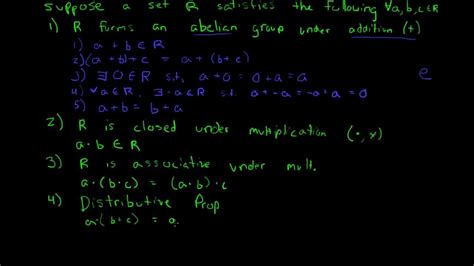 suppose a set R satisfies the following ∀a,b,c∈R
1) R forms an abelian group under addition (+)
1) a + b ∈ R
2) (a + b) + c = a + (b+c)
3) ∃ 0 ∈ R s.t. a + 0 = 0 + a = a
4) ∀ a ∈ R, ∃ -a ∈ R s.t. a + -a = -a + a = 0
5) a + b = b + a
e
2) R is closed under multiplication (·, ×)
a·b ∈ R
3) R is associative under mult.
a·(b·c) = (a·b)·c
4) Distributive Prop
a·(b+c) = a